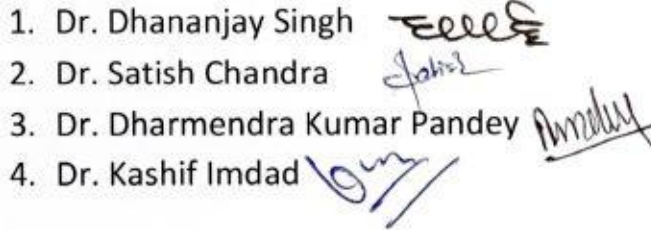 1. Dr. Dhananjay Singh
2. Dr. Satish Chandra Satish
3. Dr. Dharmendra Kumar Pandey
4. Dr. Kashif Imdad